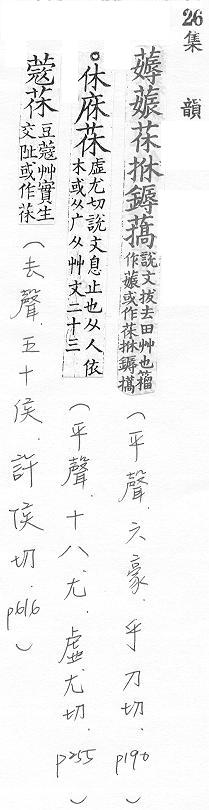 26
集韻
薅薅茠㧌鎒薧 說文拔去田艸也籀作薅或作茠㧌鎒薧 (平聲.六豪.乎刀切.p190)
○休庥茠 虛尤切說文息止也从人依木或从广从艸文二十三 (平聲.十八.尤.虛尤切.p255)
蔻茠 豆蔻艸實生交阯或作茠 (去聲.五十侯.許侯切.p616)